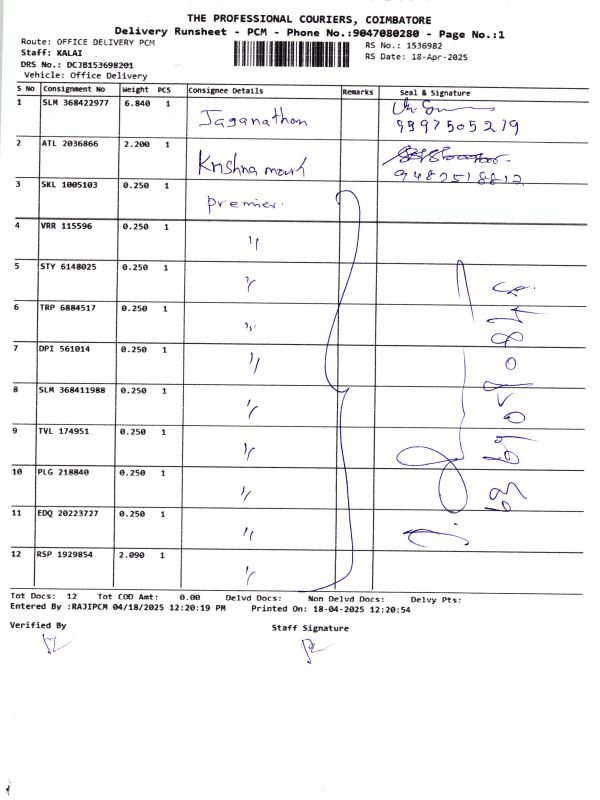 THE PROFESSIONAL COURIERS, COIMBATORE
Delivery Runsheet - PCM - Phone No.:9047080280 - Page No.:1
Route: OFFICE DELIVERY PCM
RS No.: 1536982
Staff: KALAI
RS Date: 18-Apr-2025
DRS No.: DCJB153698201
Vehicle: Office Delivery
S No Consignment No Weight PCS Consignee Details Remarks Seal & Signature
1 SLM 368422977 6.840 1 Jaganathan 9997505279
2 ATL 2036866 2.200 1 Krishna 9487518812
3 SKL 1005103 0.250 1 premier.
4 VRR 115596 0.250 1 "
5 STY 6148025 0.250 1 "
6 TRP 6884517 0.250 1 "
7 DPI 561014 0.250 1 "
8 SLM 368411988 0.250 1 "
9 TVL 174951 0.250 1 "
10 PLG 218840 0.250 1 "
11 EDQ 20223727 0.250 1 "
12 RSP 1929854 2.090 1 "
Tot Docs: 12 Tot COD Amt: 0.00 Delvd Docs: Non Delvd Docs: Delvy Pts:
Entered By :RAJIPCM 04/18/2025 12:20:19 PM Printed On: 18-04-2025 12:20:54
Verified By Staff Signature